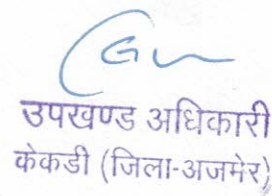 उपखण्ड अधिकारी
केकडी (जिला-अजमेर)